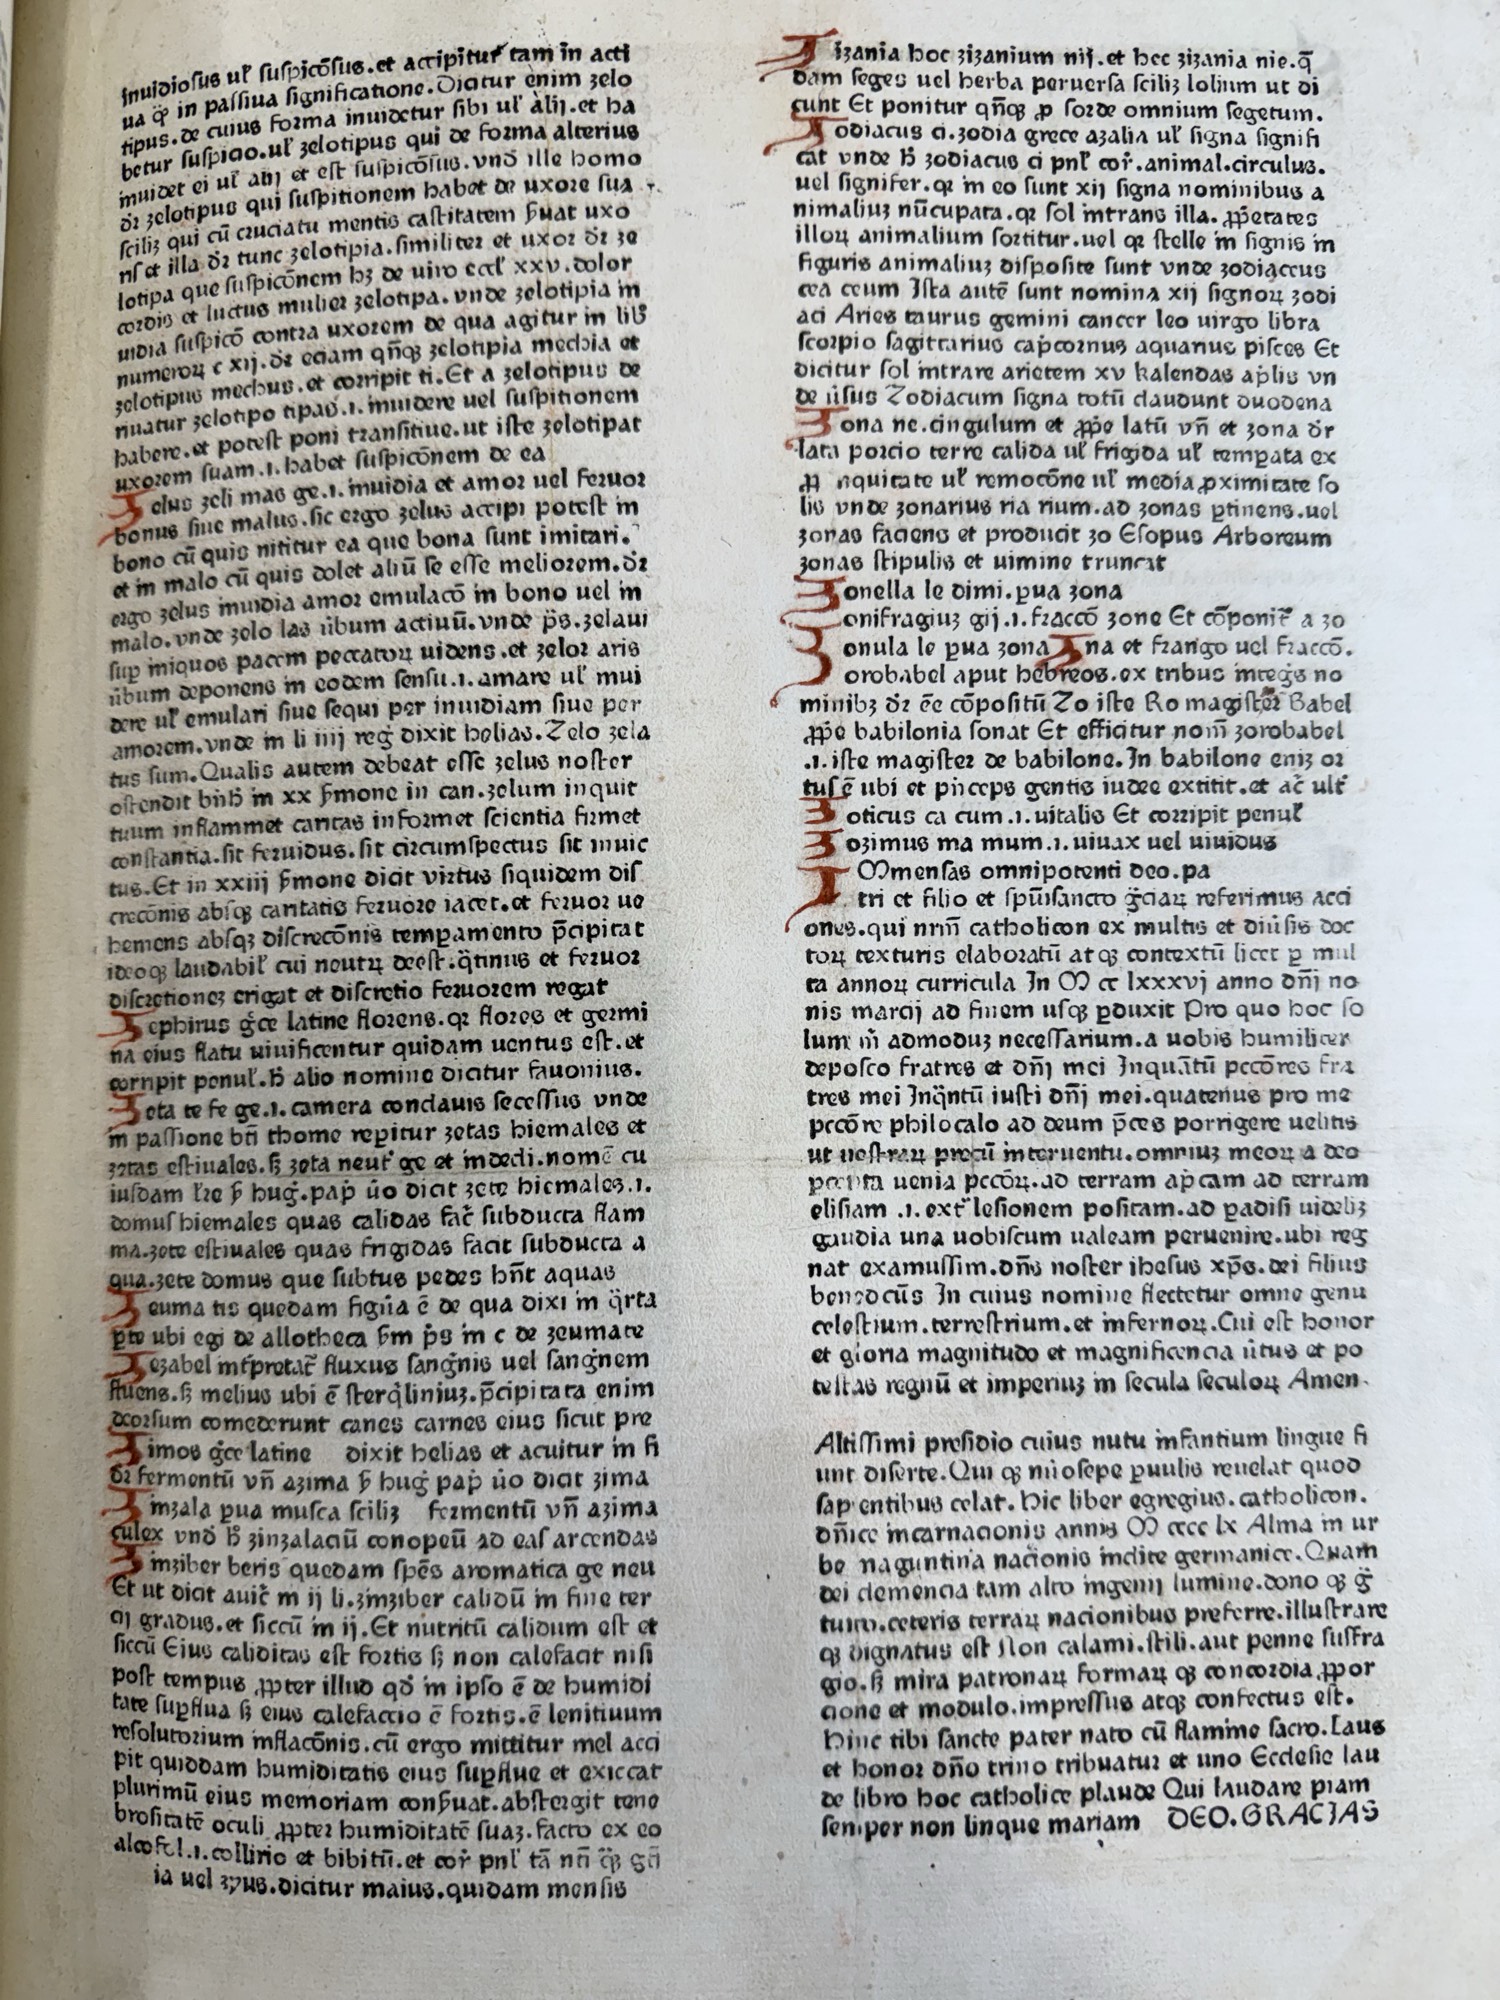 inuidiosus uł suspicōsus.et accipitur tam in acti
ua ꝙ in passiua significatione.Dicitur enim zelo
tipus.de cuius forma inuidetur sibi uł alij.et ha
betur suspicio.uł zelotipus qui de forma alterius
inuidet ei uł alij et est suspicōsus.vnd ille homo
dr̄ zelotipus qui suspitionem habet de uxore sua
sciliꝫ qui cū cruciatu mentis castitatem ẜuat uxo
ris et illa dr̄ tunc zelotipia.similiter et uxor dr̄ ze
lotipa que suspicōnem hꝫ de uiro eccł xxv.dolor
cordis et luctus mulier zelotipa.vnde zelotipia in
uidia suspicō contra uxorem de qua agitur in lib
numeroꝝ c xij.dr̄ eciam qn̄qꝫ zelotipia mechia et
zelotipus mechus.et corripit ti.Et a zelotipus de
riuatur zelotipo tipas.i.inuidere uel suspitionem
habere.et potest poni transitiue.ut iste zelotipat
uxorem suam.i.habet suspicōnem de ea
Zelus zeli mas ge.i.inuidia et amor uel feruor
bonus siue malus.sic ergo zelus accipi potest in
bono cū quis nititur ea que bona sunt imitari.
et in malo cū quis dolet aliū se esse meliorem.dr̄
ergo zelus inuidia amor emulacō in bono uel in
malo.vnde zelo las u̇bum actiuū.vnde p̄s.zelaui
suꝑ iniquos pacem peccatoꝝ uidens.et zelor aris
u̇bum deponens in eodem sensu.i.amare uł inui
dere uł emulari siue sequi per inuidiam siue per
amorem.vnde in li iiij reg̅ dixit helias.Zelo zela
tus sum.Qualis autem debeat esse zelus noster
ostendit bn̄h in xx ẜmone in can.zelum inquit
tuum inflammet caritas informet scientia firmet
constantia.sit feruidus.sit circumspectus sit inuic
tus.Et in xxiij ẜmone dicit virtus siquidem dis
crecōnis absqꝫ caritatis feruore iacet.et feruor ue
hemens absqꝫ discrecōnis temꝑamento p̄cipitat
ideoqꝫ laudabił cui neutꝝ deest.q̄tinus et feruor
discretioneꝫ erigat et discretio feruorem regat
Zephirus g̅ce latine florens.qꝛ flores et germi
na eius flatu uiuificentur quidam uentus est.et
corripit penuł.h̄ alio nomine dicitur fauonius.
Zeta te fe ge.i.camera conclauis secessus vnde
in passione bt̄i thome reꝑitur zetas hiemales et
zetas estiuales.sꝫ zeta neut̄ ge et indecli.nomē cu
iusdam lr̄e ẜ hug̅.pap̄ u̇o dicit zete hiemales.i.
domus hiemales quas calidas fac̄ subducta flam
ma.zete estiuales quas frigidas facit subducta a
qua.zete domus que subtus pedes hn̄t aquas
Zeuma tis quedam figu̇a ē de qua dixi in q̄rta
ꝑte ubi egi de allotheca ẜm p̄s in c de zeumate
Zezabel int̄pretat̄ fluxus sang̅nis uel sang̅nem
fluens.sꝫ melius ubi ē sterq̄liniuꝫ.p̄cipitata enim
deorsum comederunt canes carnes eius sicut pre
Zimos g̅ce latine dixit helias et acuitur in fi
dr̄ fermentū vn̄ azima ẜ hug̅ pap̄ u̇o dicit zima
Zinzala ꝑua musca sciliꝫ fermentū vn̄ azima
culex vnd h̄ zinzalaciū conopeū ad eas arcendas
Zinziber beris quedam spēs aromatica ge neu
Et ut dicit auic̄ in ij li.zinziber calidū in fine ter
cij gradus.et siccū in ij.Et nutritū calidum est et
siccū Eius caliditas est fortis sꝫ non calefacit nisi
post tempus ꝓpter illud qd̄ in ipso ē de humidi
tate suꝑflua sꝫ eius calefaccio ē fortis.ē lenitiuum
resolutorium inflacōnis.cū ergo mittitur mel acci
pit quiddam humiditatis eius suꝑflue et exiccat
plurimū eius memoriam conẜuat.abstergit tene
brositatē oculi ꝓpter humiditatē suaꝫ.facto ex eo
alcofol.i.collirio et bibitū.et cor̄ pnł tā
ia uel zyus.dicitur maius.quidam mensis
Zizania hoc zizanium nij.et hec zizania nie.q̄
dam seges uel herba peruersa sciliꝫ lolium ut di
cunt Et ponitur qn̄qꝫ ꝓ sorde omnium segetum.
Zodiacus ci.zodia grece azalia uł signa signifi
cat vnde h̄ zodiacus ci pnł cor̄.animal.circulus.
uel signifer.qꝛ in eo sunt xij signa nominibus a
nimaliuꝫ nūcupata.qꝛ sol intrans illa.ꝓp̄etates
illoꝝ animalium sortitur.uel qꝛ stelle in signis in
figuris animaliuꝫ disposite sunt vnde zodiaceus
cea ceum Ista autē sunt nomina xij signoꝝ zodi
aci Aries taurus gemini cancer leo uirgo libra
scorpio sagittarius cap̄cornus aquarius pisces Et
dicitur sol intrare arietem xv kalendas ap̄lis vn
de u̇sus Zodiacum signa totū claudunt duodena
Zona ne.cingulum et ꝓp̄e latū vn̄ et zona dr̄
lata porcio terre calida uł frigida uł temꝑata ex
ꝓpinquitate uł remocōne uł media ꝓximitate so
lis vnde zonarius ria rium.ad zonas ꝑtinens.uel
zonas faciens et producit zo Esopus Arboreum
zonas stipulis et uimine truncat
Zonella le dimi.ꝑua zona
Zonifragiuꝫ gij.i.fraccō zone Et cōponit̄ a zo
Zonula le ꝑua zona Zna et frango uel fraccō.
Zorobabel aput hebreos.ex tribus integ̅s no
minibꝫ dr̄ ēe cōpositū Zo iste Ro magister Babel
ꝓp̄e babilonia sonat Et efficitur nom̄ zorobabel
.i.iste magister de babilone.In babilone eniꝫ or
tus ē ubi et p̄nceps gentis iudee extitit.et ac̄ ult̄
Zoticus ca cum.i.uitalis Et corripit penuł
Zozimus ma mum.i.uiuax uel uiuidus
IMmensas omnipotenti deo.pa
tri et filio et spūisancto g̅ciaꝝ referimus acci
ones.qui nr̄m catholicon ex multis et diu̇sis doc
toꝝ texturis elaboratū atqꝫ contextū licet ꝑ mul
ta annoꝝ curricula In M cc lxxxvj anno dn̄j no
nis marcij ad finem usqꝫ ꝑduxit Pro quo hoc so
lum m̄ admoduꝫ necessarium.a uobis humiliter
deposco fratres et dn̄j mei Inquātū pccōres fra
tres mei Inq̄ntū iusti dn̄j mei.quatenus pro me
pccōre philocalo ad deum p̄ces porrigere uelitis
ut uestraꝝ precū interuentu.omniuꝫ meoꝝ a deo
pcepta uenia pccōꝝ.ad terram ap̄cam ad terram
elisiam .i.ext̄ lesionem positam.ad ꝑadisi uideliꝫ
gaudia una uobiscum ualeam peruenire.ubi reg
nat examussim.dn̄s noster ihesus xp̄s.dei filius
benedcūs In cuius nomine flectetur omne genu
celestium.terrestrium.et infernoꝝ.Cui est honor
et gloria magnitudo et magnificencia u̇tus et po
testas regnū et imperiuꝫ in secula seculoꝝ Amen.
Altissimi presidio cuius nutu infantium lingue fi
unt diserte.Qui qꝫ nu̇osepe ꝑuulis reuelat quod
sapientibus celat.Hic liber egregius.catholicon.
dn̄ice incarnacionis annis M cccc lx Alma in ur
be maguntina nacionis inclite germanice.Quam
dei clemencia tam alto ingenij lumine.dono qꝫ g̅
tuito.ceteris terraꝝ nacionibus preferre.illustrare
qꝫ dignatus est Non calami.stili.aut penne suffra
gio.sꝫ mira patronaꝝ formaꝝ qꝫ concordia ꝓpor
cione et modulo.impressus atqꝫ confectus est.
Hinc tibi sancte pater nato cū flamine sacro.Laus
et honor dn̄o trino tribuatur et uno Ecclesie lau
de libro hoc catholice plaude Qui laudare piam
semper non linque mariam DEO.GRACIAS